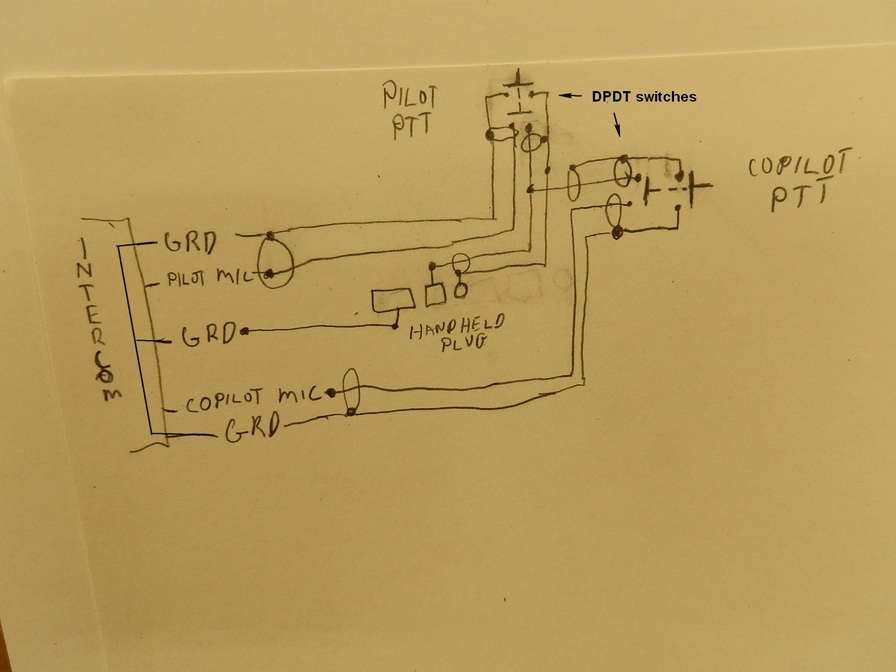 PILOT
PTT
DPDT switches
COPILOT
PTT
INTERCOM
GRD
PILOT MIC
GRD
HANDHELD
PLUG
COPILOT MIC
GRD